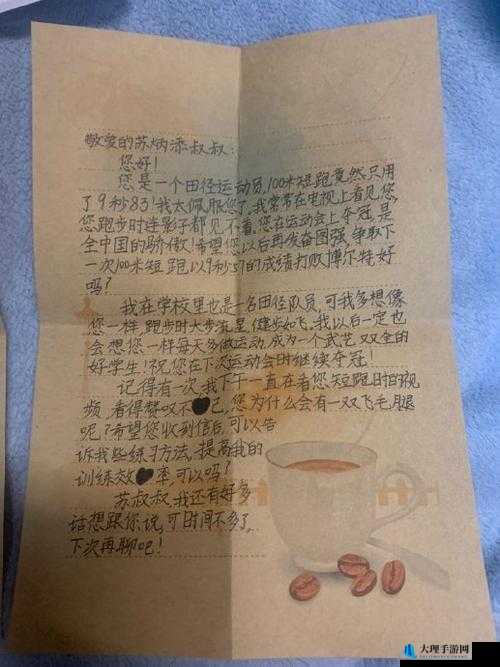 敬爱的苏炳添叔叔：
您好！
您是一个田径运动员，100米短跑竟然只用
了9秒83！我太佩服您了。我常常在电视上看见您，
您跑步时连影子都见不着。您在运动会上夺冠是
全中国的骄傲！希望您以后再发奋图强，争取下
一次100米短跑以9秒57的成绩打败博尔特好
吗？
我在学校里也是一名田径队员，可我多想像
您一样跑步时大步流星，健步如飞。我以后一定也
会想您一样每天多做运动，成为一个武艺双全的
好学生！祝您在下次运动会时继续夺冠！
记得有一次我下午一直在看您短跑时的视
频，看得赞叹不已，您为什么会有一双飞毛腿
呢？希望您收到信后，可以告
诉我些练习方法，提高我的
训练效率，可以吗？
苏叔叔，我还有好多
话想跟你说，可时间不多了，
下次再聊吧！
大理手游网